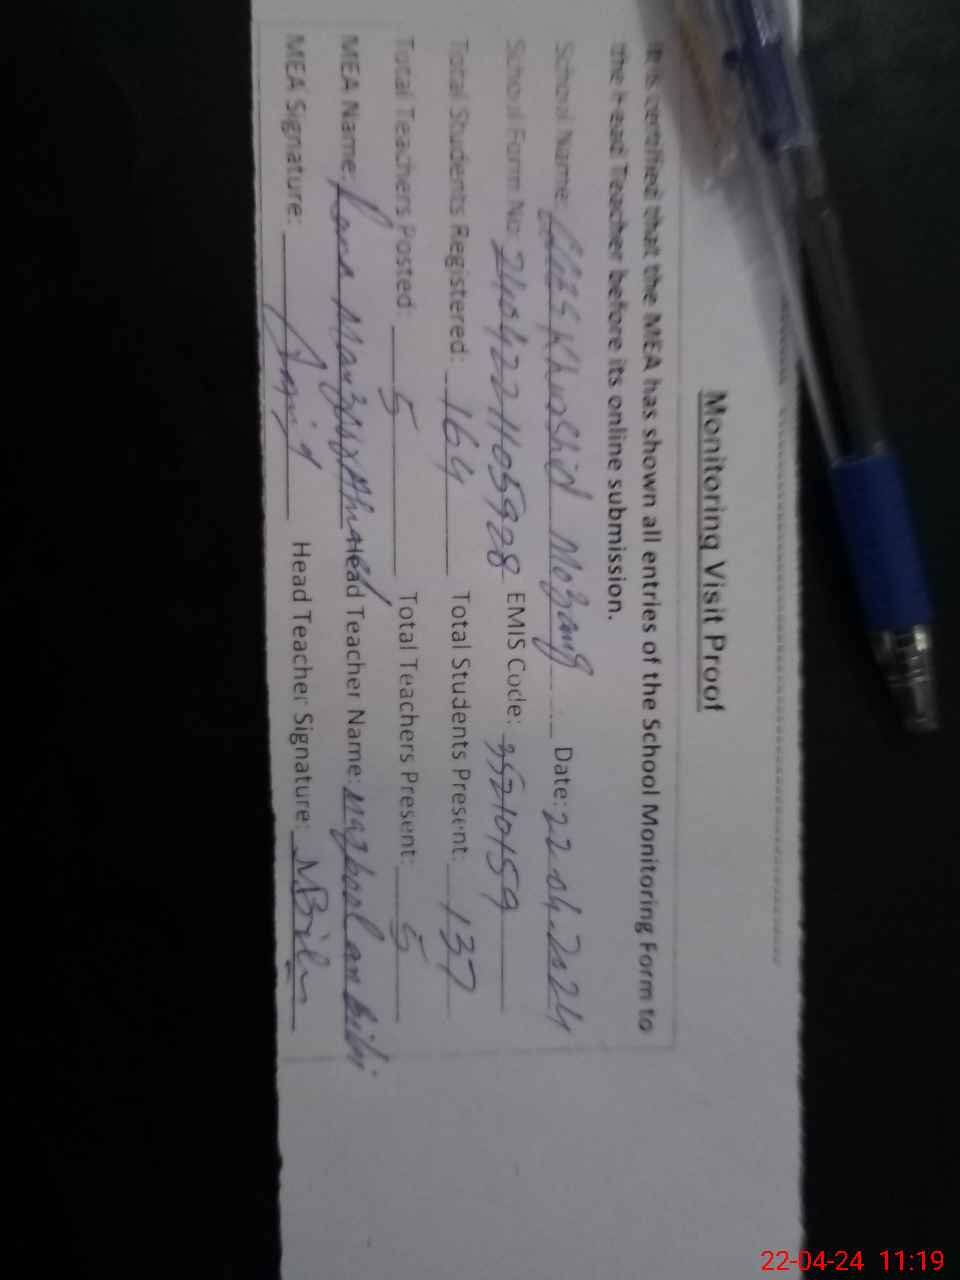 Monitoring Visit Proof
It is certified that the MEA has shown all entries of the School Monitoring Form to
the Head Teacher before its online submission.
School Name: Khurshid Mozang Date: 22.04.2024
School Form No: EMIS Code: 35210159
Total Students Registered: 164 Total Students Present: 137
Total Teachers Posted: 5 Total Teachers Present: 5
MEA Name: Rana Head Teacher Name: bibi
MEA Signature: Head Teacher Signature:
22-04-24 11:19